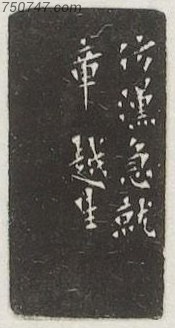 750747.com
仿漢急就
章 越生